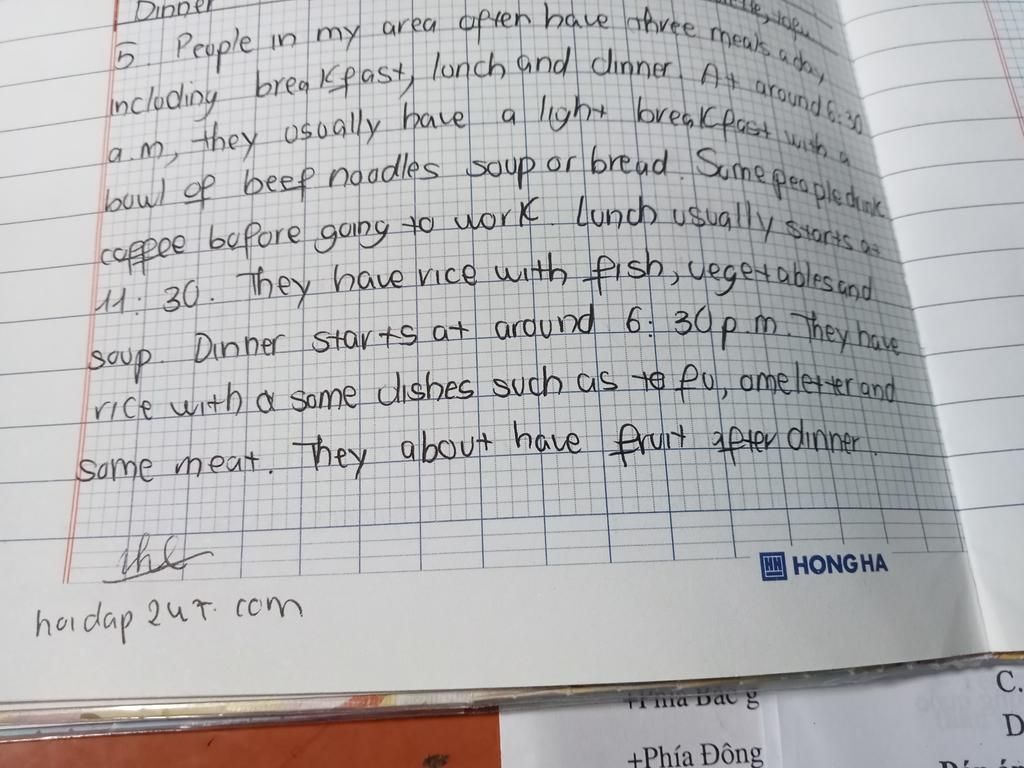 Dinner
5. People in my area often have three meals a day,
including breakfast, lunch and dinner. At around 6:30
a.m, they usually have a light breakfast with a
bowl of beef noodles soup or bread. Some people drink
coffee before going to work. Lunch usually starts at
11:30. They have rice with fish, vegetables and
soup. Dinner starts at around 6:30 p.m. They have
rice with a some dishes such as to fu, omeletter and
some meat. They about have fruit after dinner.
HONG HA
hoidap 247.com
+Phía Bắc g
+Phía Đông
C.
D